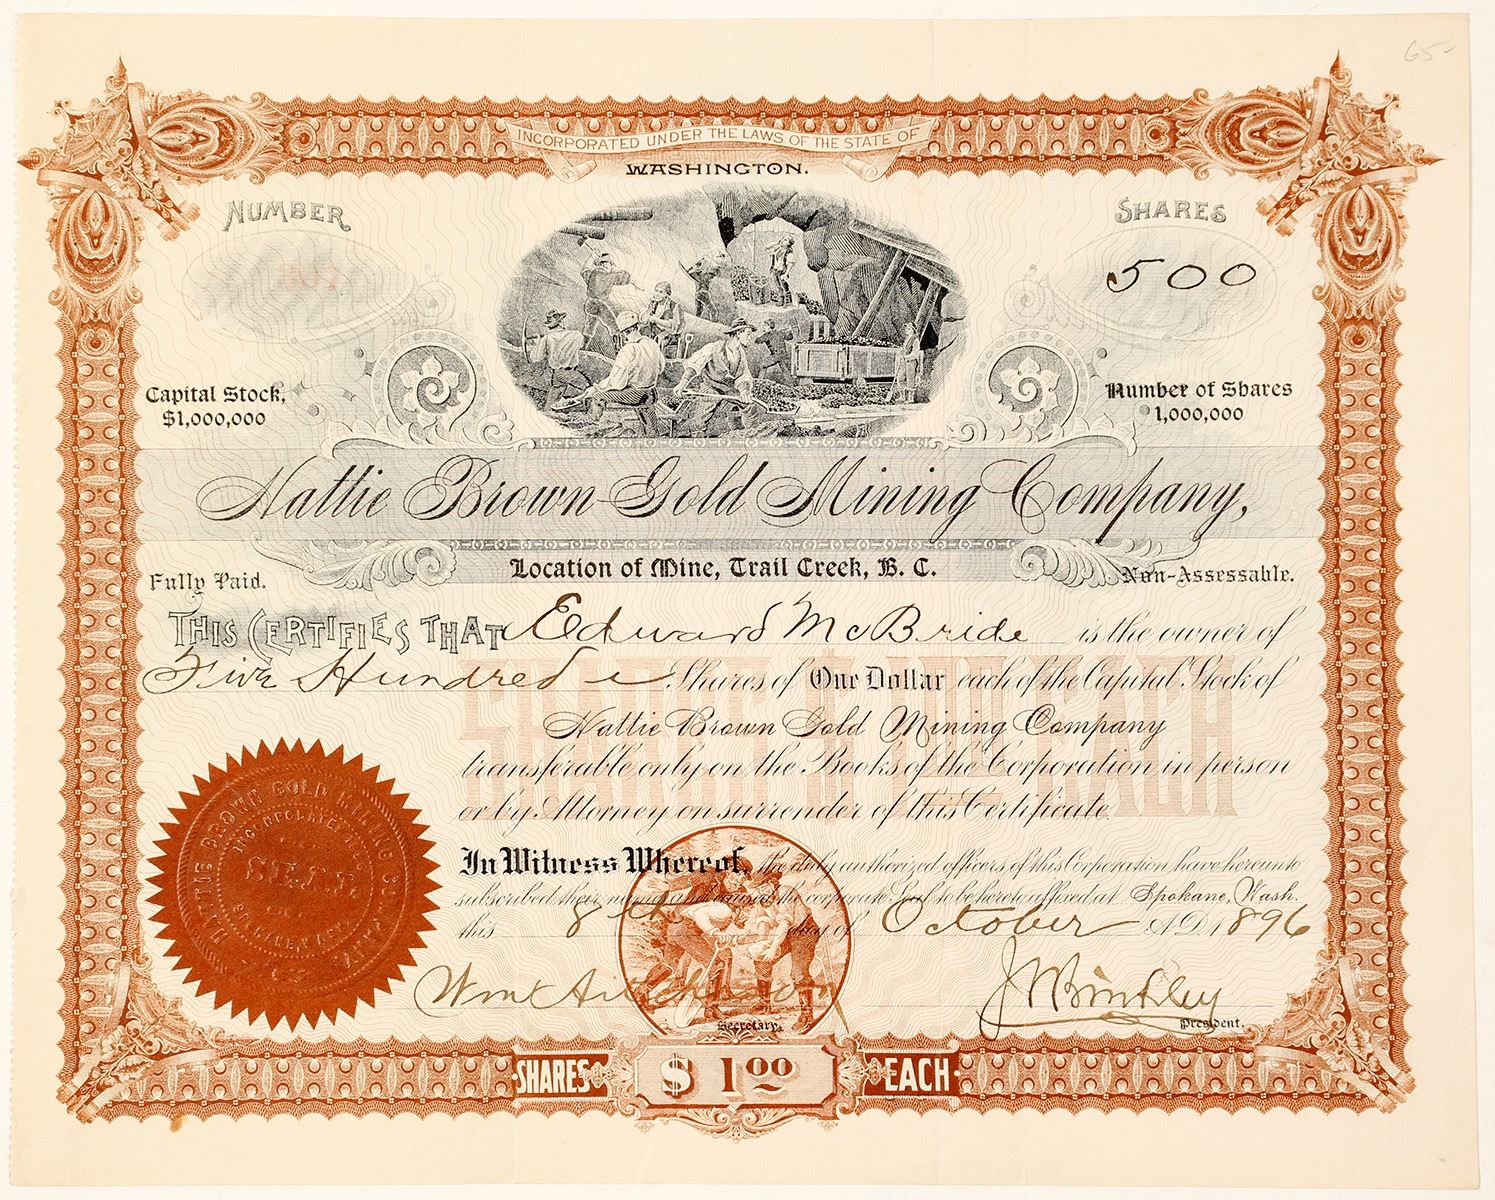 65
INCORPORATED UNDER THE LAWS OF THE STATE OF
WASHINGTON.
NUMBER
SHARES
500
Capital Stock,
$1,000,000
Number of Shares
1,000,000
Hattie Brown Gold Mining Company,
Location of Mine, Trail Creek, B. C.
Fully Paid.
Non-Assessable.
THIS CERTIFIES THAT Edward McBride is the owner of
Five Hundred Shares of One Dollar each of the Capital Stock of
Hattie Brown Gold Mining Company
transferable only on the Books of the Corporation in person
or by Attorney on surrender of this Certificate.
SHARES $1.00 EACH
In Witness Whereof, the duly authorized officers of this Corporation have hereunto
subscribed their names and caused the corporate Seal to be hereto affixed at Spokane, Wash.
this 8th day of October A.D. 1896
HATTIE BROWN GOLD MINING COMPANY
INCORPORATED
SEAL
SPOKANE, WASH.
Wm Aitchison
Secretary.
J W Binkley
President.
SHARES $1.00 EACH